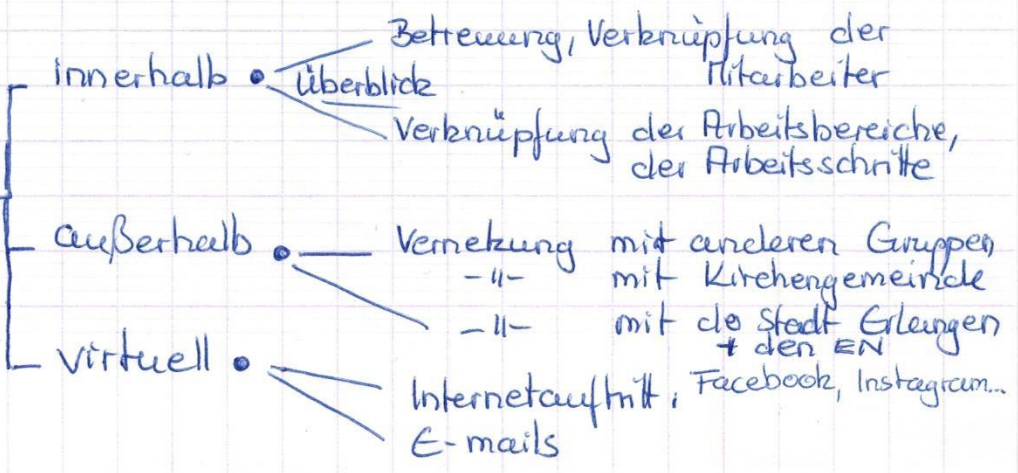 Betreuung, Verknüpfung der
Mitarbeiter
innerhalb • Überblick
Verknüpfung der Arbeitsbereiche,
der Arbeitsschritte
außerhalb • Vernetzung mit anderen Gruppen
-"- mit Kirchengemeinde
-"- mit de Stadt Erlangen
+ den EN
virtuell •
Internetauftritt, Facebook, Instagram...
E-mails